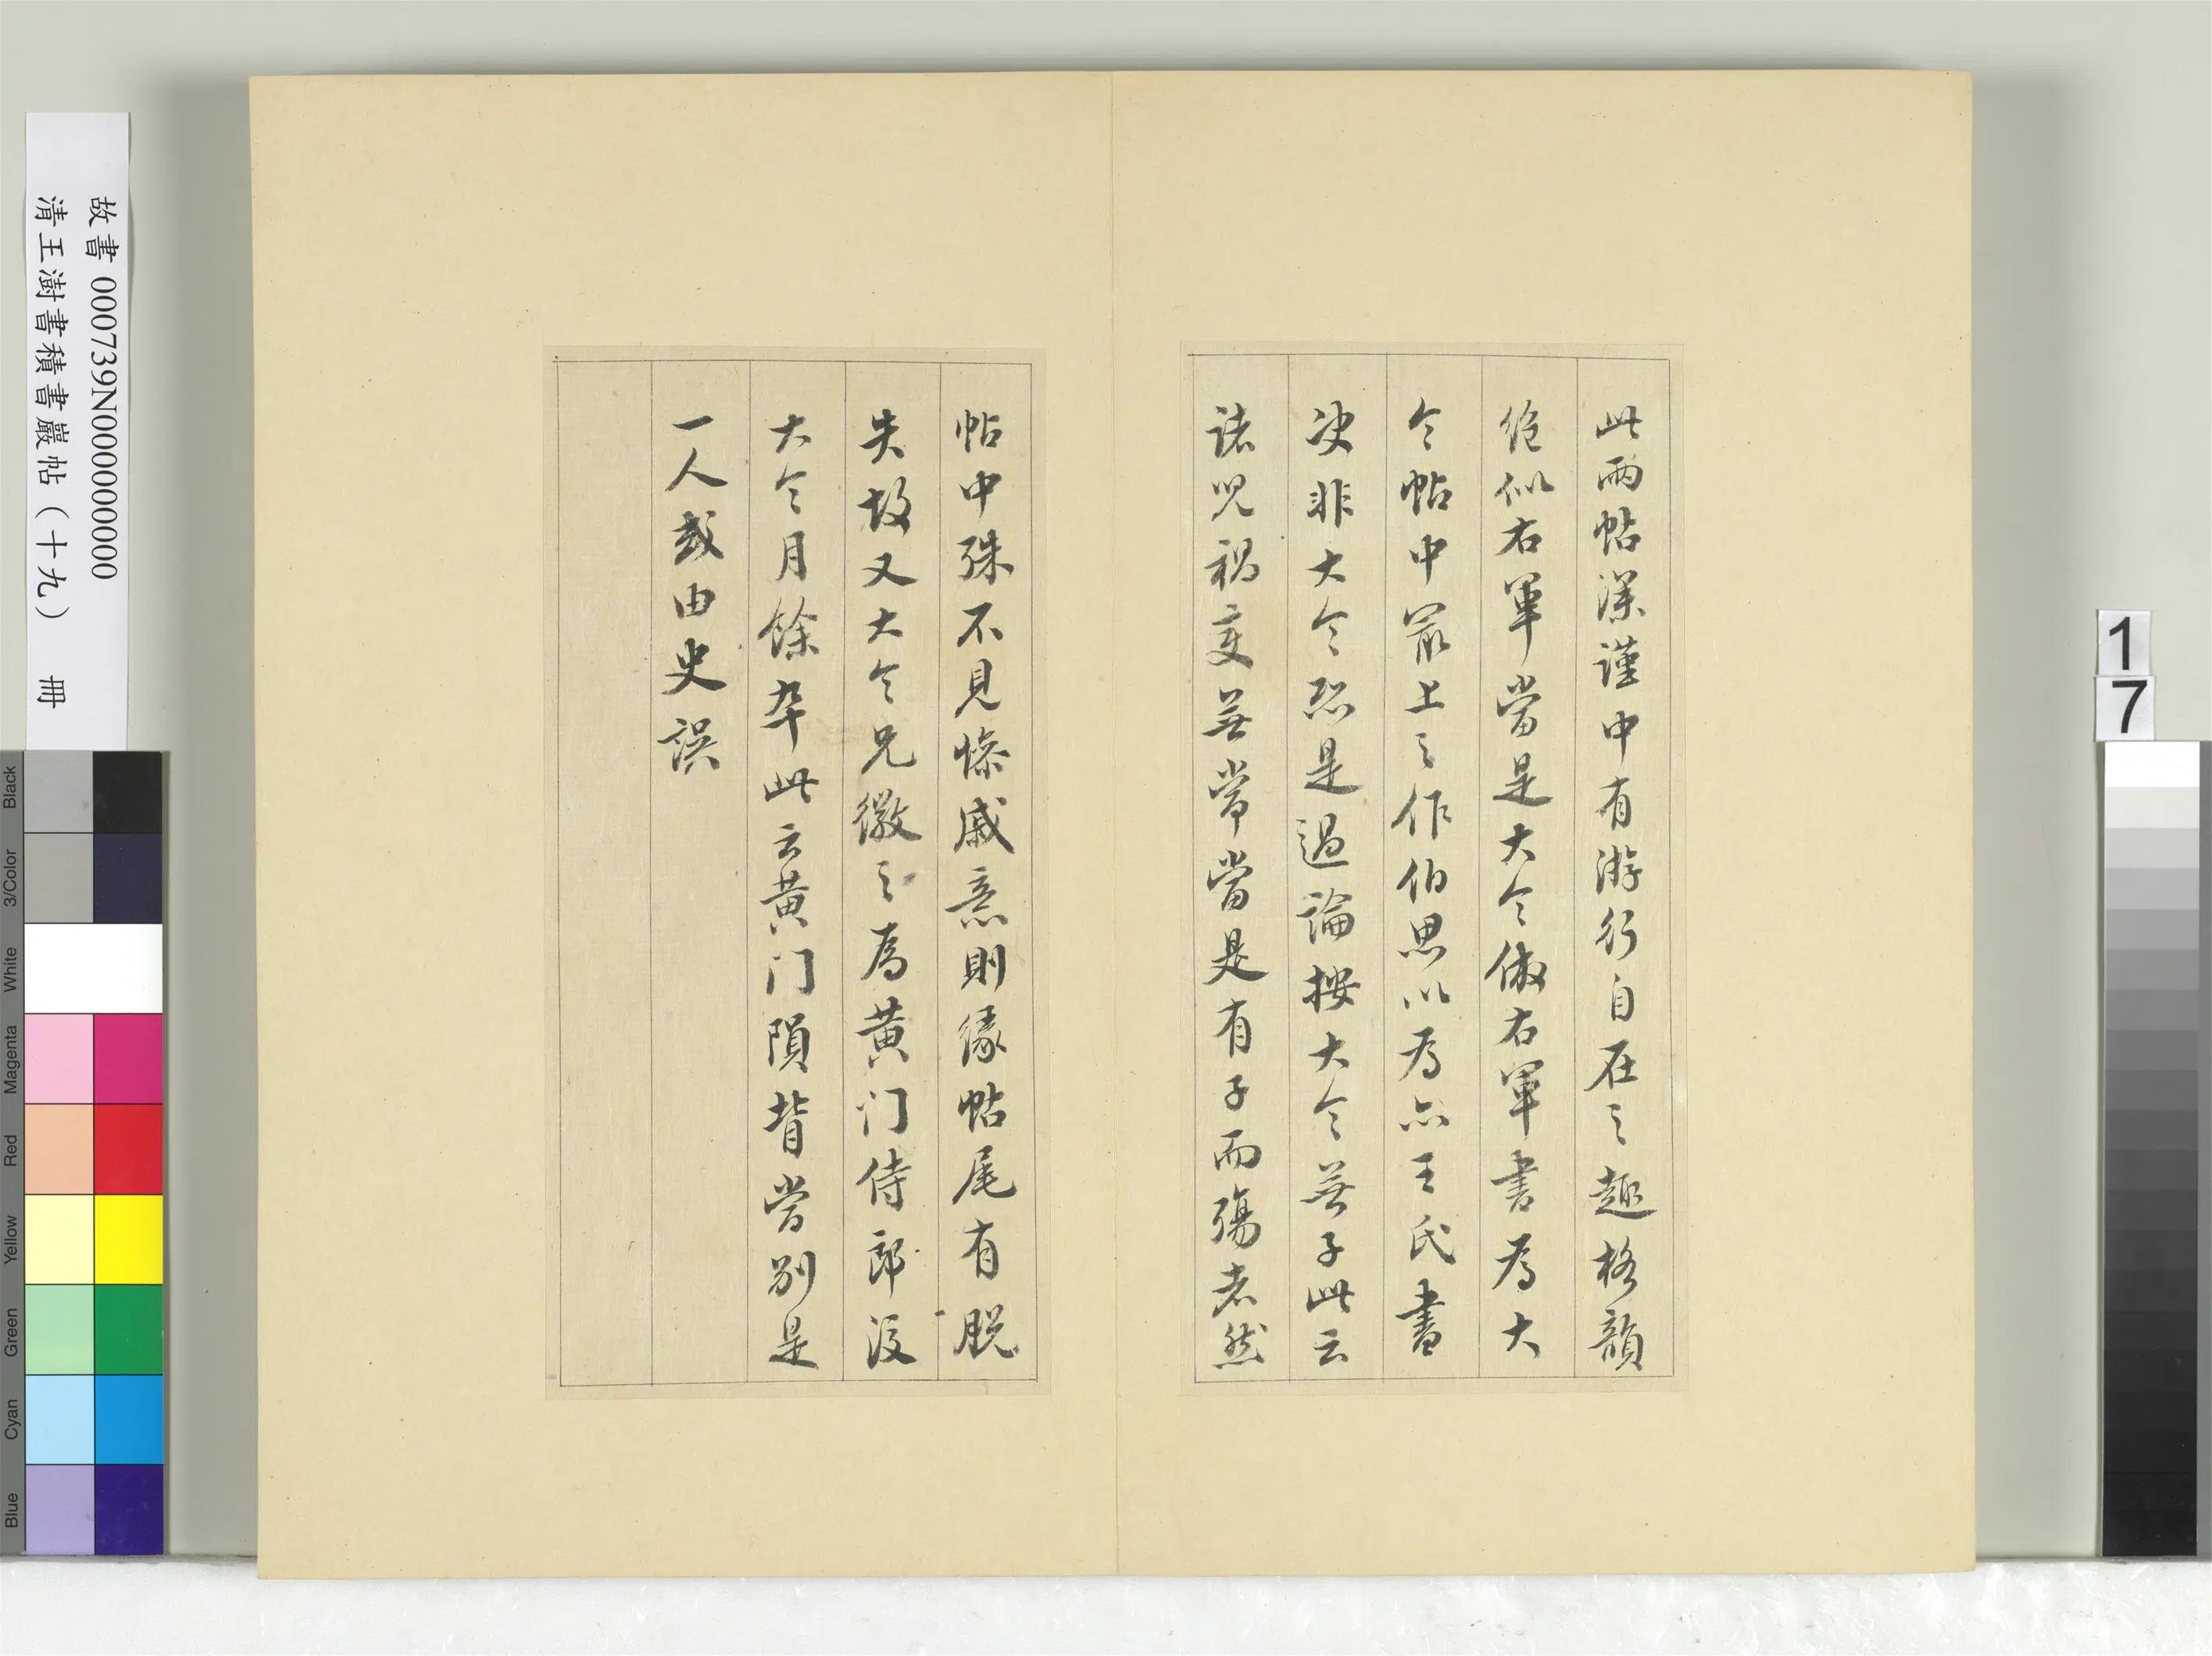 此兩帖深謹中有游行自在之趣格韻
絶似右軍當是大令倣右軍書為大
令帖中最上之作伯思以為亦王氏書
決非大令恐是過論按大令無子此云
諸児禍變無常當是有子而殤者然
帖中殊不見慘戚意則緣帖尾有脱
失故又大令兄徽之為黃门侍郎後
大令月餘卒此云黃门隕背當別是
一人或由史誤
故書 000739N000000000
清王澍書積書巖帖（十九） 冊
1
7
Black
3/Color
White
Magenta
Red
Yellow
Green
Cyan
Blue